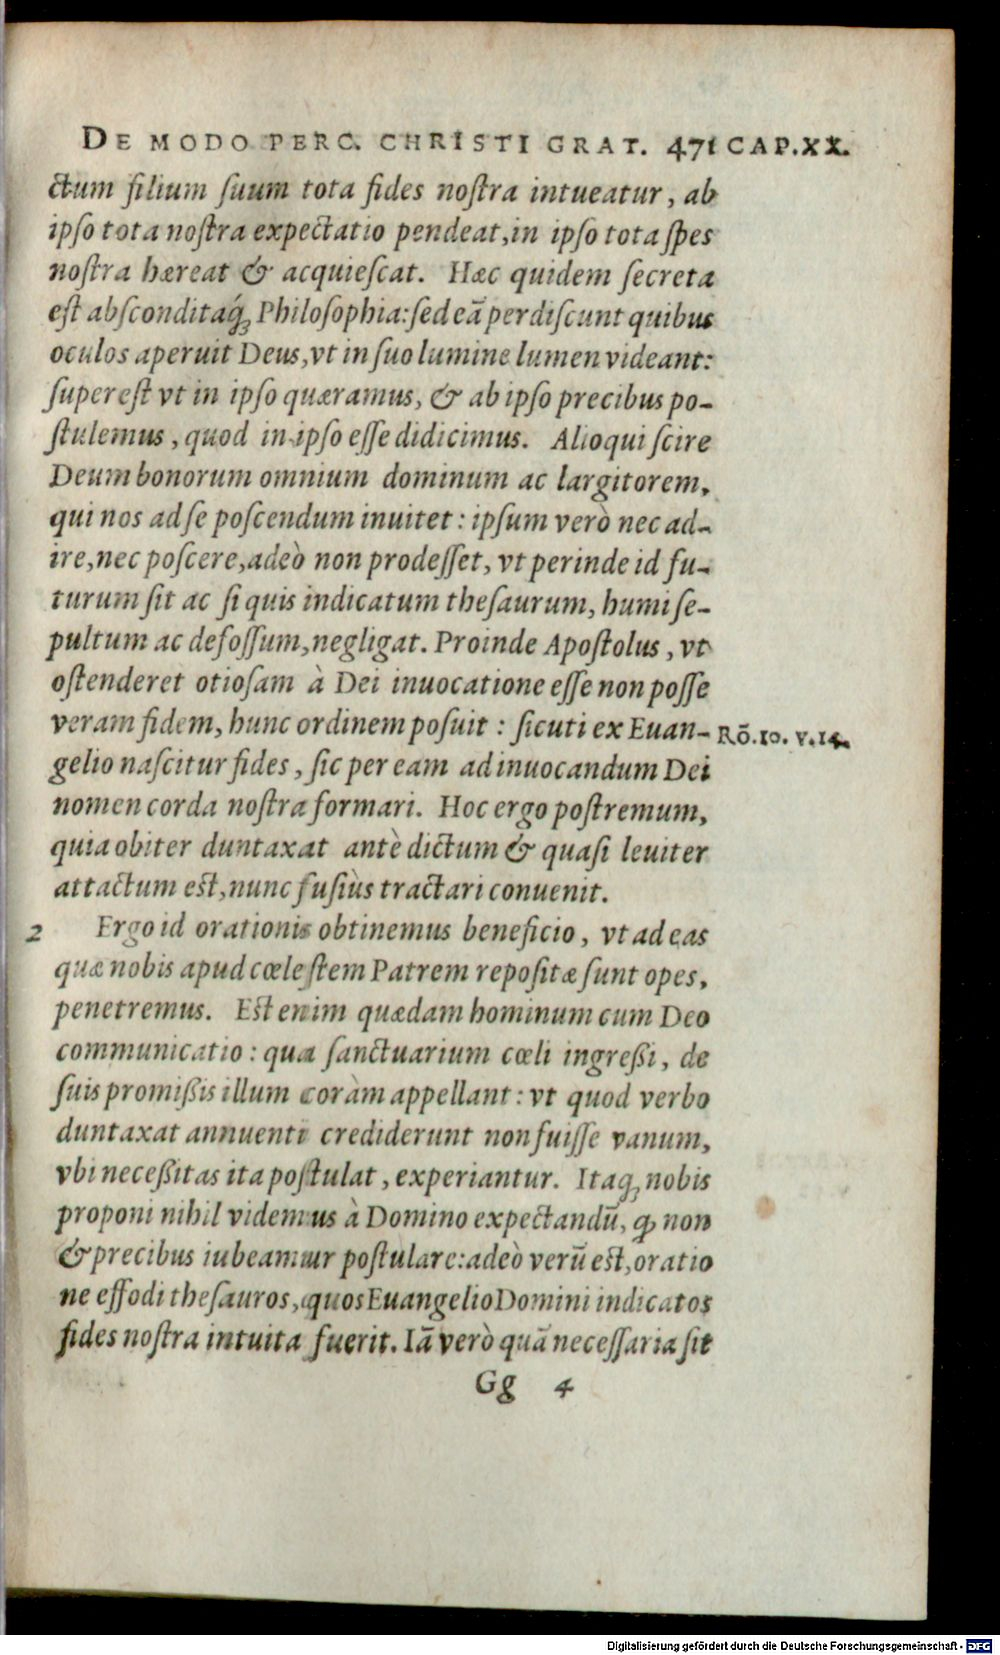 DE MODO PERC. CHRISTI GRAT. 471 CAP.XX.
ctum filium ſuum tota fides noſtra intueatur, ab
ipſo tota noſtra expectatio pendeat, in ipſo tota ſpes
noſtra hæreat & acquieſcat. Hæc quidem ſecreta
eſt abſconditaq́ꝫ Philoſophia: ſed eā perdiſcunt quibus
oculos aperuit Deus, vt in ſuo lumine lumen videant:
ſupereſt vt in ipſo quæramus, & ab ipſo precibus po-
ſtulemus, quod in ipſo eſſe didicimus. Alioqui ſcire
Deum bonorum omnium dominum ac largitorem,
qui nos ad ſe poſcendum inuitet: ipſum verò nec ad-
ire, nec poſcere, adeò non prodeſſet, vt perinde id fu-
turum ſit ac ſi quis indicatum theſaurum, humi ſe-
pultum ac defoſſum, negligat. Proinde Apoſtolus, vt
oſtenderet otioſam à Dei inuocatione eſſe non poſſe
veram fidem, hunc ordinem poſuit: ſicuti ex Euan- Rō.10. v.14.
gelio naſcitur fides, ſic per eam ad inuocandum Dei
nomen corda noſtra formari. Hoc ergo poſtremum,
quia obiter duntaxat antè dictum & quaſi leuiter
attactum eſt, nunc fuſiùs tractari conuenit.
2 Ergo id orationis obtinemus beneficio, vt ad eas
quæ nobis apud cœleſtem Patrem repoſitæ ſunt opes,
penetremus. Eſt enim quædam hominum cum Deo
communicatio: qua ſanctuarium cœli ingreßi, de
ſuis promißis illum coràm appellant: vt quod verbo
duntaxat annuenti crediderunt non fuiſſe vanum,
vbi neceßitas ita poſtulat, experiantur. Itaqꝫ nobis
proponi nihil videmus à Domino expectandū, ꝙ non
& precibus iubeamur poſtulare: adeò verū eſt, oratio
ne effodi theſauros, quos Euangelio Domini indicatos
fides noſtra intuita fuerit. Iā verò quā neceſſaria ſit
Gg 4
Digitalisierung gefördert durch die Deutsche Forschungsgemeinschaft - DFG